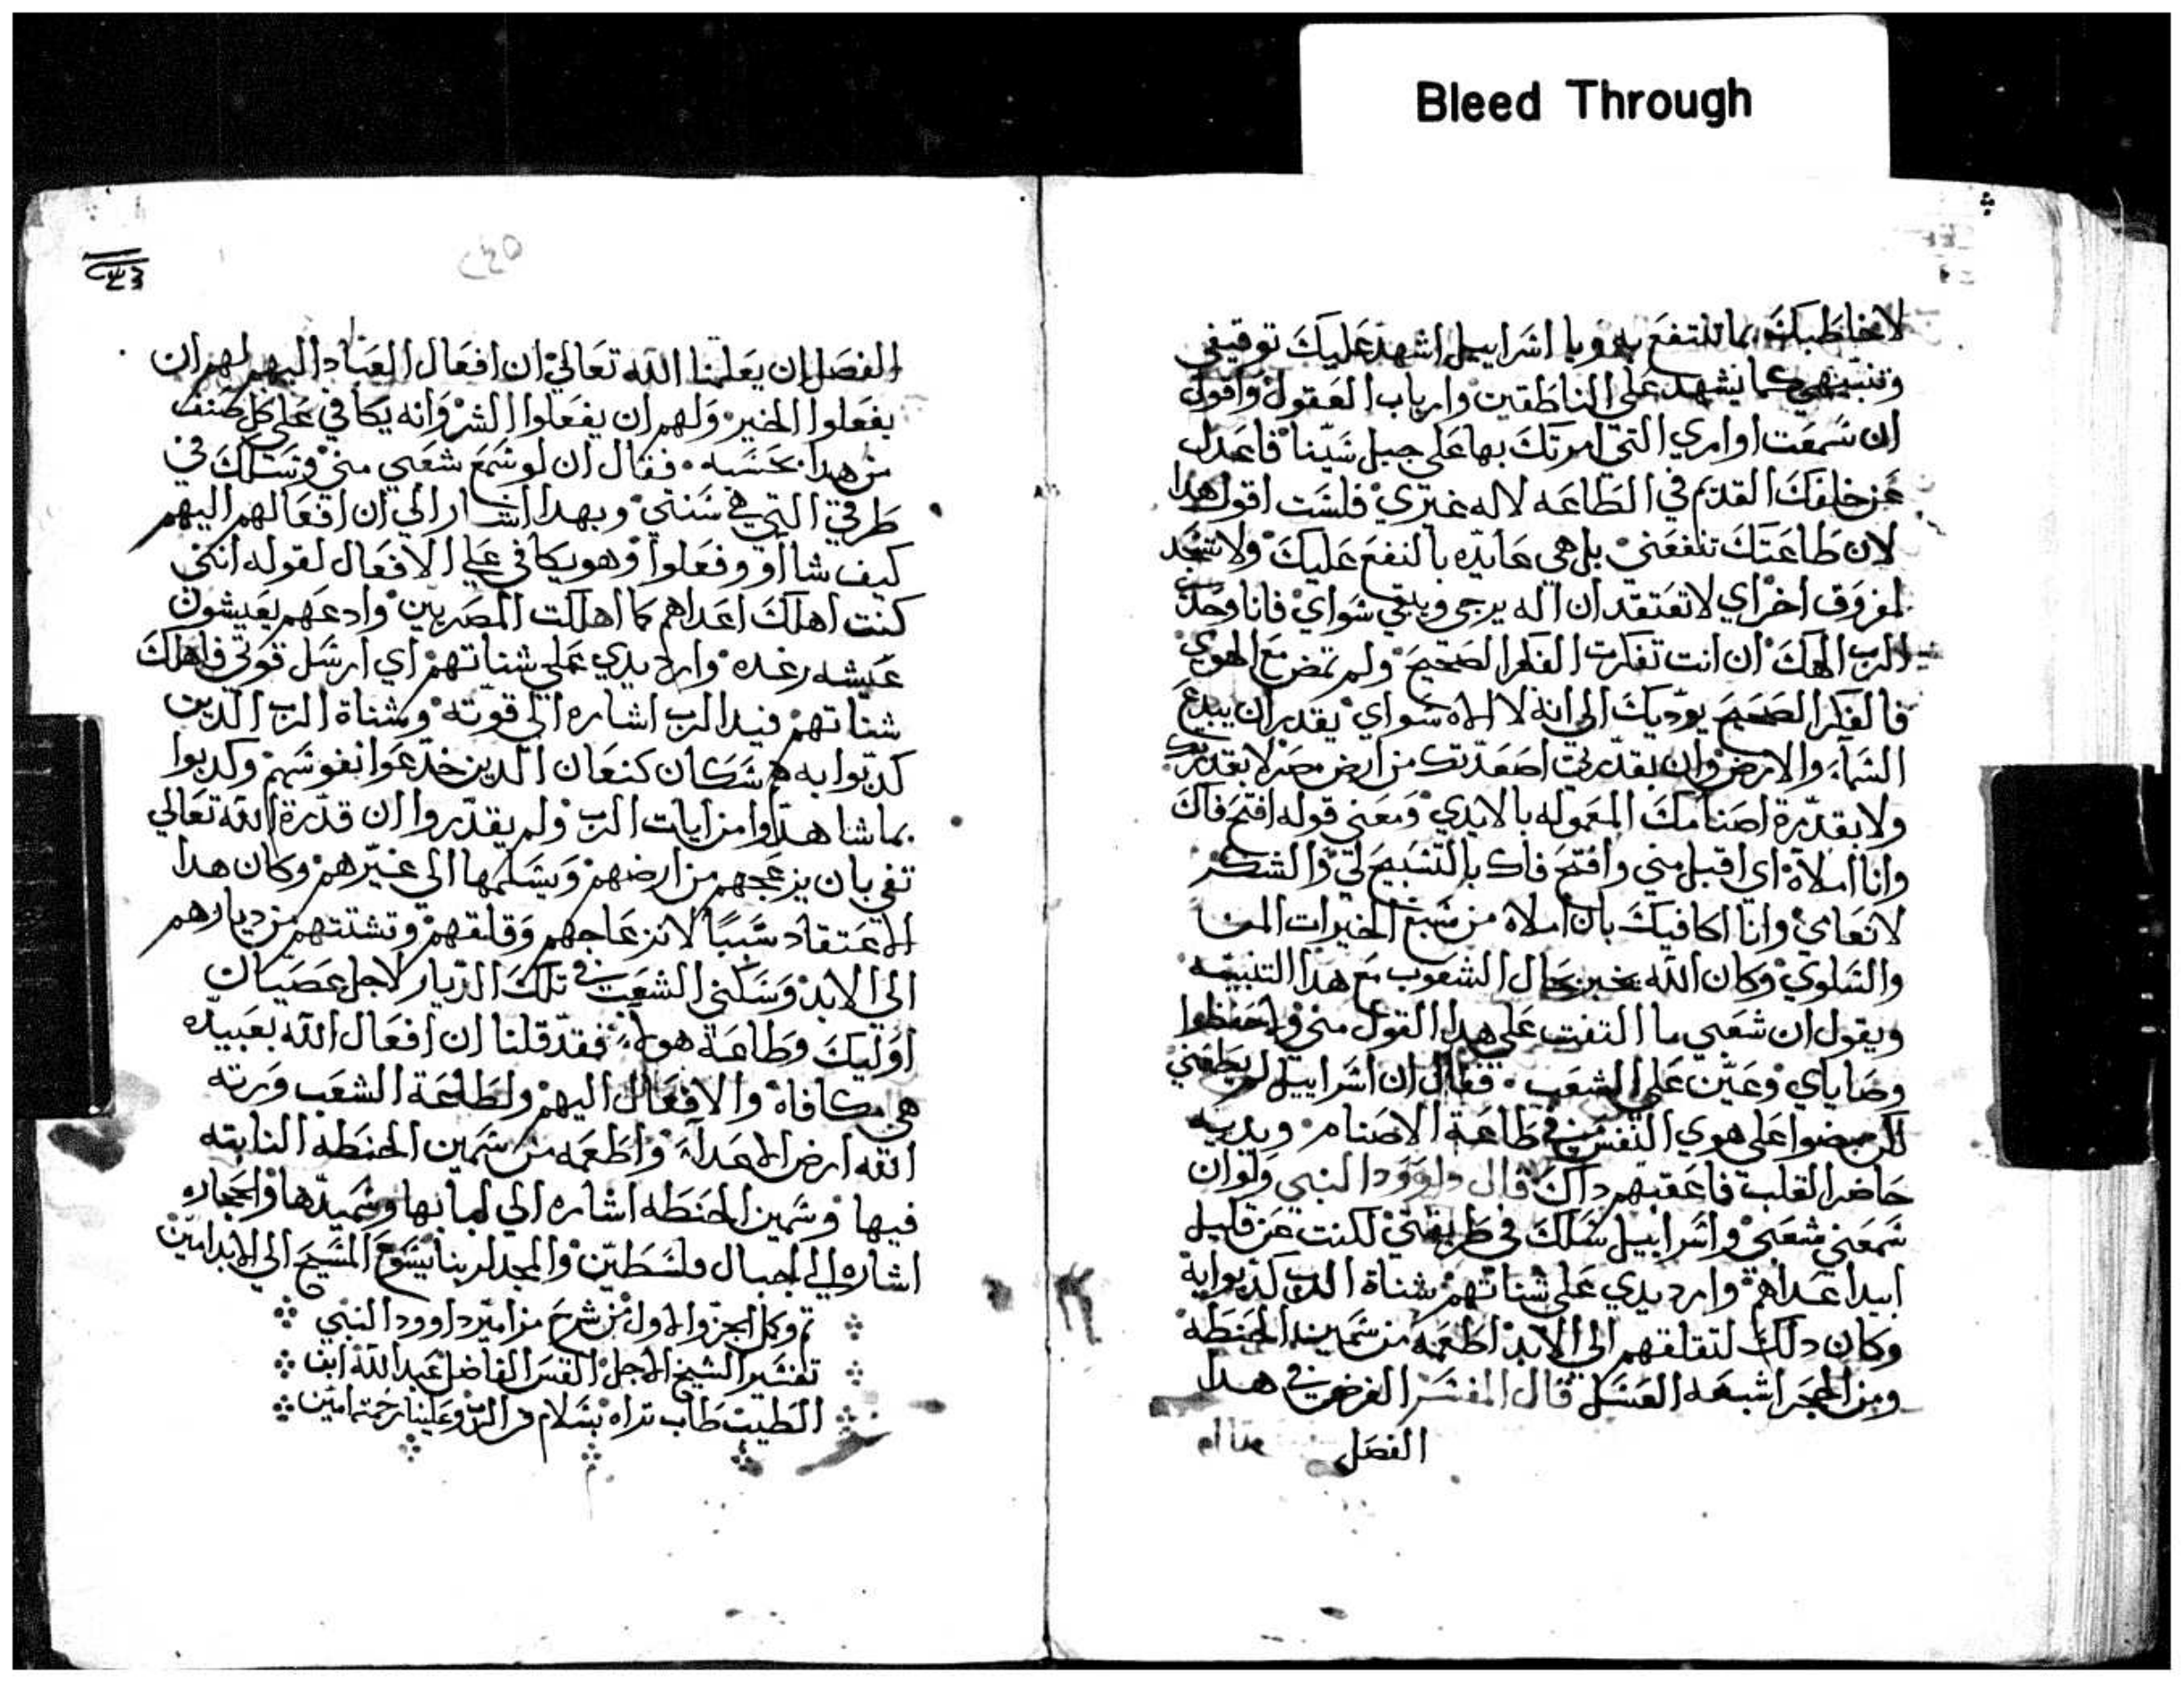 Bleed Through
لاخاطبك بما تنتفع به ويا اسراييل اشهد عليك توقيفي
وتنبيهي كما يشهد علي الناطقين وارباب العقول واقول
ان سمعت اوامري التي امرتك بها علي جبل سينا فاعدل
عن خلفك القديم في الطاعه لاله غيري فلست اقول هدا
لان طاعتك تنفعني بل هي عايده بالنفع عليك ولا تسجد
لمزوق اخر اي لا تعتقد ان اله يرجي ويتقي سواي فانا وحدي
الرب الهك ان انت تفكرت الفكر الصحيح ولم تمض مع الهوي
فالفكر الصحيح يوديك الي انه لا الاه سواي يقدر ان يبدع
السما والارض وان بقدرتي اصعدتك من ارض مصر لا بقدرتك
ولا بقدرة اصنامك المعموله بالايدي ومعني قوله افتح فاك
وانا املاه اي اقبل مني وافتح فاك بالتسبيح لي والشكر
لانعامي وانا اكافيك بان املاه من سبغ الخيرات المن
والسلوي وكان الله يخبر بحال الشعوب مع هدا التنبيه
ويقول ان شعبي ما التفت علي هدا القول مني ولا حفظوا
وصاياي وعين علي الشعب فقال ان اسراييل لم يطعني
لكن مضوا علي هوي النفس في طاعة الاصنام وبدية
حاضر القلب فاعقبهم داك قال داوود النبي ولو ان
سمعني شعبي واسراييل سلك في طريقتي لكنت عن قليل
ابيد اعداهم وارد يدي علي شناتهم شناة الرب كدبوا به
وكان دلك لتقلقهم الي الابد اطعمه من سمين الحنطه
ومن الحجر اشبعه العسل قال المفسر الغرض في هدا
الفصل
الفصل ان يعلمنا الله تعالي ان افعال العباد اليهم لهم ان
يفعلوا الخير ولهم ان يفعلوا الشر وانه يكافي علي كل صنف
من هدا بحسبه فقال ان لو سمع شعبي مني وتسلك في
طرقي التي هي سنني وبهدا اشار الي ان افعالهم اليهم
كيف شااوو فعلوا وهو يكافي علي الافعال لقوله انني
كنت اهلك اعداهم كما اهلكت المصريين وادعهم يعيشون
عيشه رغده وارد يدي علي شناتهم اي ارسل قوتي فاهلك
شناتهم فيد الرب اشاره الي قوته وشناة الرب الدين
كدبوا به هم سكان كنعان الدين خدعوا نفوسهم وكدبوا
بما شاهدوا من ايات الرب ولم يقدروا ان قدرة الله تعالي
تفي بان يزعجهم من ارضهم ويسلمها الي غيرهم وكان هدا
الاعتقاد سببا لانزعاجهم وقلقهم وتشتتهم من ديارهم
الي الابد وسكني الشعب في تلك الديار لاجل عصيان
اوليك وطاعة هولاء فقد قلنا ان افعال الله بعبيده
هي مكافاه والافعال اليهم ولطاعة الشعب ورته
الله ارض الاعداء واطعمه من سمين الحنطه النابته
فيها وسمين الحنطه اشاره الي لبابها وسميدها والحجاره
اشاره الي الجبال فلسطين والمجد لربنا يسوع المسيح الي الابد امين
تم وكمل الجزو الاول من شرح مزامير داوود النبي
تفسير الشيخ الاجل القس الفاضل عبد الله ابن
الطيب طاب تراه بسلام من الرب وعلينا رحمته امين